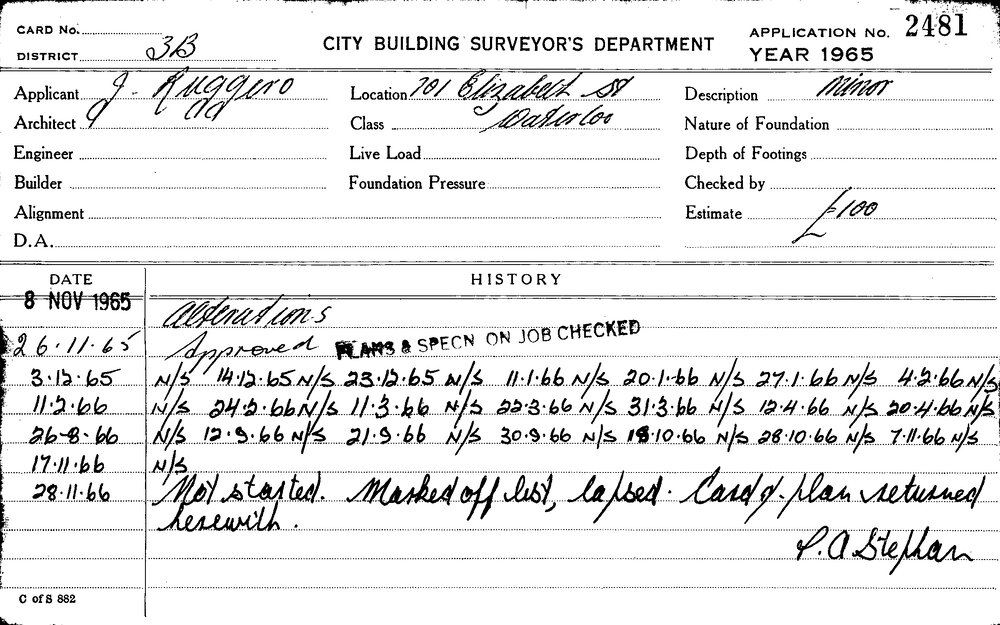 CARD No.
DISTRICT 3B
CITY BUILDING SURVEYOR'S DEPARTMENT
APPLICATION No. 2481
YEAR 1965
Applicant J. Ruggero
Location 701 Elizabeth St
Description Minor
Architect
Class Waterloo
Nature of Foundation
Engineer
Live Load
Depth of Footings
Builder
Foundation Pressure
Checked by
Alignment
Estimate £100
D.A.
DATE HISTORY
8 NOV 1965 Alterations
26.11.65 Approved PLANS & SPECN ON JOB CHECKED
3.12.65 N/S 14.12.65 N/S 23.12.65 N/S 11.1.66 N/S 20.1.66 N/S 27.1.66 N/S 4.2.66 N/S
11.2.66 N/S 24.2.66 N/S 11.3.66 N/S 22.3.66 N/S 31.3.66 N/S 12.4.66 N/S 20.4.66 N/S
26-8.66 N/S 12.9.66 N/S 21.9.66 N/S 30.9.66 N/S 18.10.66 N/S 28.10.66 N/S 7.11.66 N/S
17.11.66 N/S
28.11.66 Not started. Marked off list, lapsed. Card & plan returned
herewith.
P. A Stephan
C of S 882